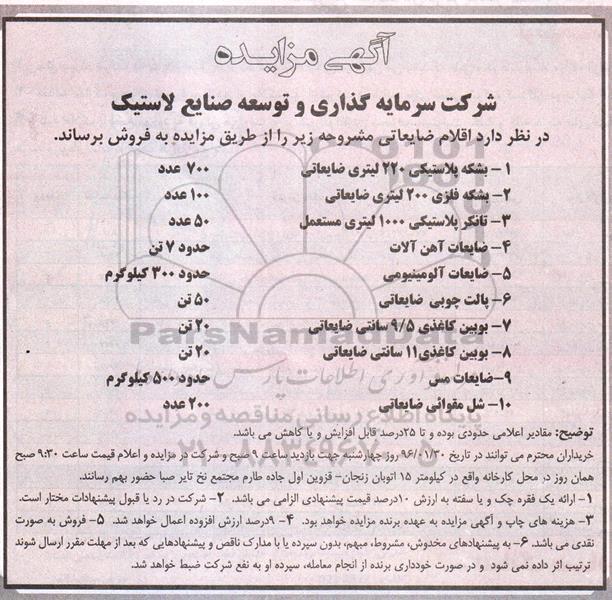 آگهی مزایده
شرکت سرمایه گذاری و توسعه صنایع لاستیک
در نظر دارد اقلام ضایعاتی مشروحه زیر را از طریق مزایده به فروش برساند.
۱- بشکه پلاستیکی ۲۲۰ لیتری ضایعاتی ۷۰۰ عدد
۲- بشکه فلزی ۲۰۰ لیتری ضایعاتی ۱۰۰ عدد
۳- تانکر پلاستیکی ۱۰۰۰ لیتری مستعمل ۵۰ عدد
۴- ضایعات آهن آلات حدود ۷ تن
۵- ضایعات آلومینیومی حدود ۳۰۰ کیلوگرم
۶- پالت چوبی ضایعاتی ۵۰ تن
ParsNamadData
۷- بوبین کاغذی ۹/۵ سانتی ضایعاتی ۲۰ تن
۸- بوبین کاغذی۱۱ سانتی ضایعاتی ۲۰ تن
۹-ضایعات مس حدود ۵۰۰ کیلوگرم
۱۰- شل مقوائی ضایعاتی ۲۰۰ عدد
پایگاه اطلاع رسانی مناقصه و مزایده
توضیح: مقادیر اعلامی حدودی بوده و تا ۲۵درصد قابل افزایش و یا کاهش می باشد.
خریداران محترم می توانند در تاریخ ۹۶/۰۱/۳۰ روز چهارشنبه جهت بازدید ساعت ۹ صبح و شرکت در مزایده و اعلام قیمت ساعت ۹:۳۰ صبح
همان روز در محل کارخانه واقع در کیلومتر ۱۵ اتوبان زنجان- قزوین اول جاده طارم مجتمع نخ تایر صبا حضور بهم رسانند.
۱- ارائه یک فقره چک و یا سفته به ارزش ۱۰درصد قیمت پیشنهادی الزامی می باشد. ۲- شرکت در رد یا قبول پیشنهادات مختار است.
۳- هزینه های چاپ و آگهی مزایده به عهده برنده مزایده خواهد بود. ۴- ۹درصد ارزش افزوده اعمال خواهد شد. ۵- فروش به صورت
نقدی می باشد. ۶- به پیشنهادهای مخدوش، مشروط، مبهم، بدون سپرده یا با مدارک ناقص و پیشنهادهایی که بعد از مهلت مقرر ارسال شوند
ترتیب اثر داده نمی شود و در صورت خودداری برنده از انجام معامله، سپرده او به نفع شرکت ضبط خواهد شد.